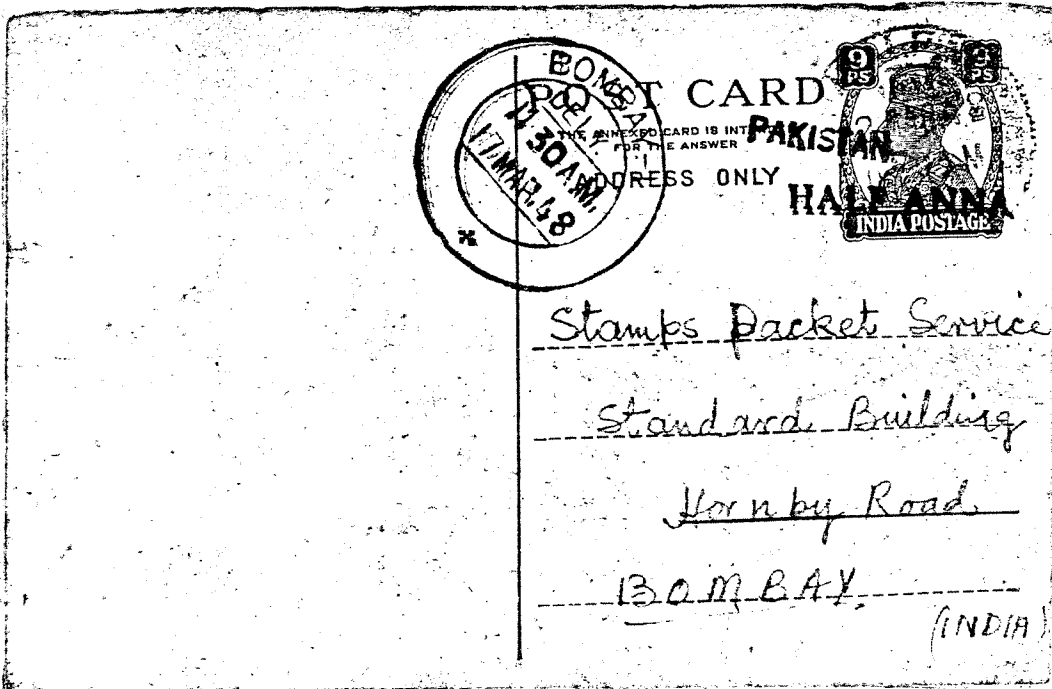 BOMBAY-1
DELY
11.30 A.M.
17 MAR. 48
POST CARD
THE ANNEXED CARD IS INT
FOR THE ANSWER
ADDRESS ONLY
9 PS 9 PS
PAKISTAN.
HALF ANNA
INDIA POSTAGE
Stamps Packet Service
Standard Building
Hornby Road
BOMBAY.
(INDIA)